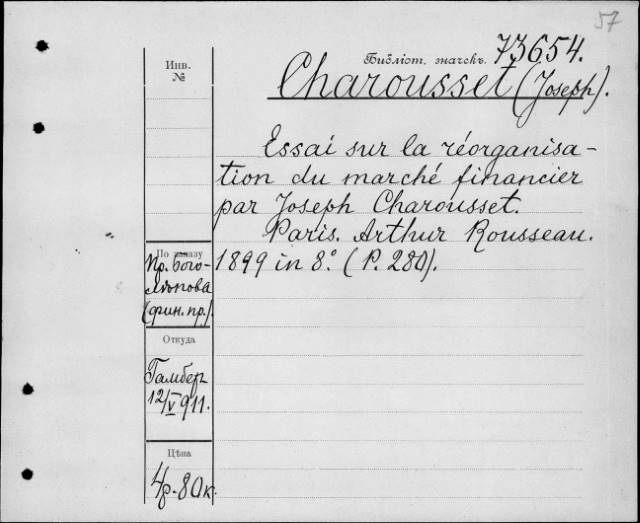 57
Библіот. значекъ 73654.
Charousset (Joseph).
Инв.
№
Essai sur la réorganisa-
tion du marché financier
par Joseph Charousset.
Paris. Arthur Rousseau.
1899 in 8º. (P. 280).
По заказу
Пр. Бого-
лѣпова
(фин. пр.).
Откуда
Гамбер
12/V 911.
Цѣна
4р. 80к.